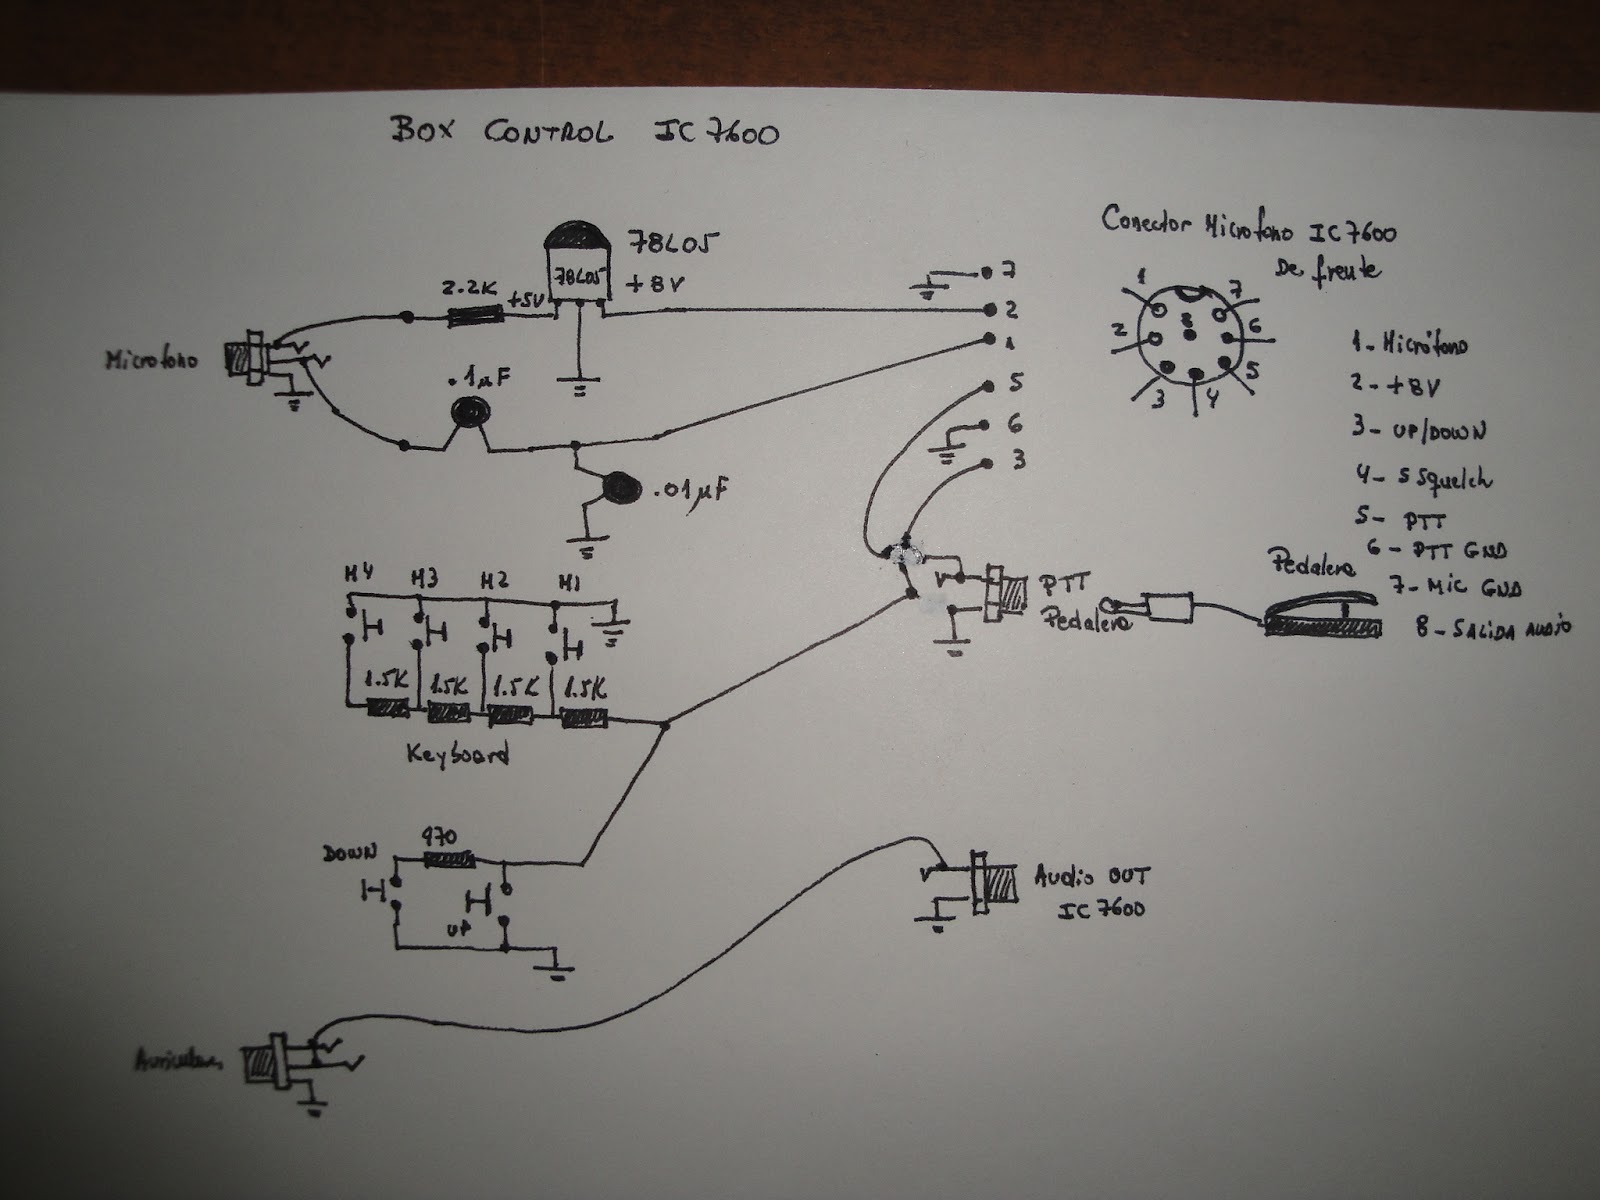 BOX CONTROL IC 7600
78L05
78L05
+8V
2.2K
+5V
Microfono
.1µF
.01µF
7
2
1
5
6
3
Conector Microfono IC7600
De frente
1
7
2
8
6
3
4
5
1- Micrófono
2- +8V
3- UP/DOWN
4- S Squelch
5- PTT
6- PTT GND
7- Mic GND
8- SALIDA AUDIO
M4 M3 M2 M1
1.5K 1.5K 1.5K 1.5K
Keyboard
PTT
Pedalera
Pedalera
DOWN
470
UP
Audio OUT
IC 7600